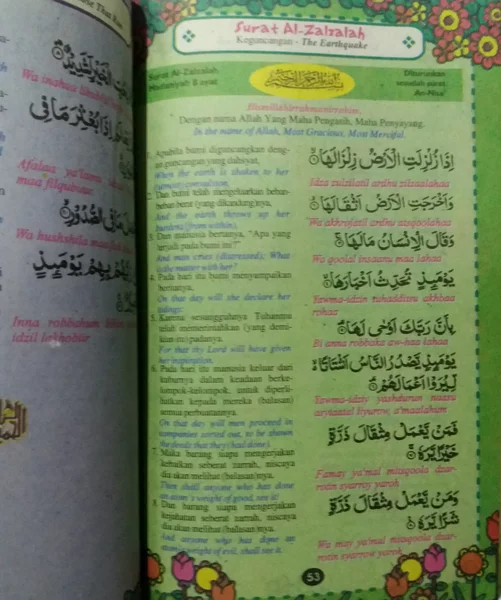 Those That Run
Wa inahuu
وَحُصِّلَ مَا فِى الصُّدُوْرِ
Inna robbahum
idzil lakhobiir
Surat Al-Zalzalah
Keguncangan - The Earthquake
Surat Al-Zalzalah
Madaniyah 8 ayat
Diturunkan
sesudah surat
An-Nisa'
Bismillahirrahmanirrahim.
Dengan nama Allah Yang Maha Pengasih, Maha Penyayang.
In the name of Allah, Most Gracious, Most Merciful.
1. Apabila bumi diguncangkan deng-
an guncangan yang dahsyat,
When the earth is shaken to her
(utmost) convulsion,
2. Dan bumi telah mengeluarkan beban-
beban berat (yang dikandung)nya,
And the earth throws up her
burdens (from within),
3. Dan manusia bertanya, "Apa yang
terjadi pada bumi ini?"
And man cries (distressed): What
is the matter with her?
4. Pada hari itu bumi menyampaikan
beritanya,
On that day will she declare her
tidings:
5. Karena sesungguhnya Tuhanmu
telah memerintahkan (yang demi-
kian itu) padanya.
For that thy Lord will have given
her inspiration.
6. Pada hari itu manusia keluar dari
kuburnya dalam keadaan berke-
lompok-kelompok, untuk diperli-
hatkan kepada mereka (balasan)
semua perbuatannya.
On that day will men proceed in
companies sorted out, to be shown
the deeds that they (had done).
7. Maka barang siapa mengerjakan
kebaikan seberat zarrah, niscaya
dia akan melihat (balasan)nya.
Then shall anyone who has done
an atom's weight of good, see it!
8. Dan barang siapa mengerjakan
kejahatan seberat zarrah, niscaya
dia akan melihat (balasan)nya.
And anyone who has done an
atom's weight of evil, shall see it.
اِذَا زُلْزِلَتِ الْاَرْضُ زِلْزَالَهَا
Idza zulzilatil ardhu zilzaalahaa
وَاَخْرَجَتِ الْاَرْضُ اَثْقَالَهَا
Wa akhrojatil ardhu atsqoolahaa
وَقَالَ الْاِنْسَانُ مَا لَهَا
Wa qoolal insaanu maa lahaa
يَوْمَئِذٍ تُحَدِّثُ اَخْبَارَهَا
Yawma-idzin tuhaddisnu akhbaa
rihaa
بِاَنَّ رَبَّكَ اَوْحٰى لَهَا
Bi anna robbaka aw-haa lahaa
يَوْمَئِذٍ يَصْدُرُ النَّاسُ اَشْتَاتًا
لِّيُرَوْا اَعْمَالَهُمْ
Yawma-idziy yashdurun naasu
asytaatal liyurow, a'maalahum
فَمَنْ يَعْمَلْ مِثْقَالَ ذَرَّةٍ
خَيْرًا يَّرَهٗ
Famay ya'mal mitsqoola dzar-
rotin khoyroy yaroh
وَمَنْ يَعْمَلْ مِثْقَالَ ذَرَّةٍ
شَرًّا يَّرَهٗ
Wa may ya'mal mitsqoola dzar-
rotin syarroy yaroh
53